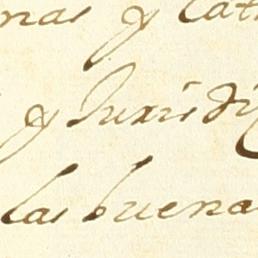 nas y Cat
y Juris di
las buena